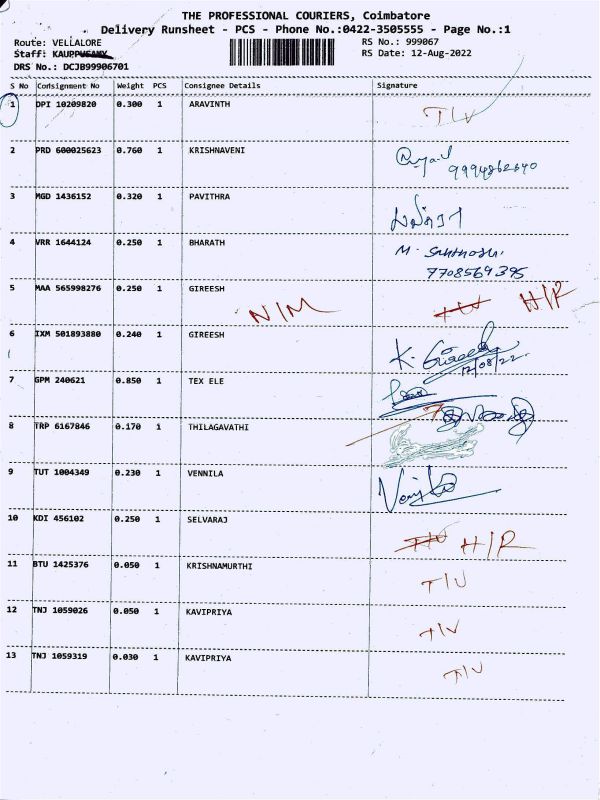 THE PROFESSIONAL COURIERS, Coimbatore
Delivery Runsheet - PCS - Phone No.:0422-3505555 - Page No.:1
Route: VELLALORE
RS No.: 999067
Staff: KAUPPUSAMY
RS Date: 12-Aug-2022
DRS No.: DCJB99906701
S No Consignment No Weight PCS Consignee Details Signature
1 DPI 10209820 0.300 1 ARAVINTH T/V
2 PRD 600025623 0.760 1 KRISHNAVENI
9994862640
3 MGD 1436152 0.320 1 PAVITHRA
4 VRR 1644124 0.250 1 BHARATH M. Santhosh.
7708569395
5 MAA 565998276 0.250 1 GIREESH N/M H/R
6 IXM 501893880 0.240 1 GIREESH K. Gireesh
12/08/22.
7 GPM 240621 0.850 1 TEX ELE
8 TRP 6167846 0.170 1 THILAGAVATHI
9 TUT 1004349 0.230 1 VENNILA
10 KDI 456102 0.250 1 SELVARAJ T/V H/R
11 BTU 1425376 0.050 1 KRISHNAMURTHI T/V
12 TNJ 1059026 0.050 1 KAVIPRIYA T/V
13 TNJ 1059319 0.030 1 KAVIPRIYA T/V